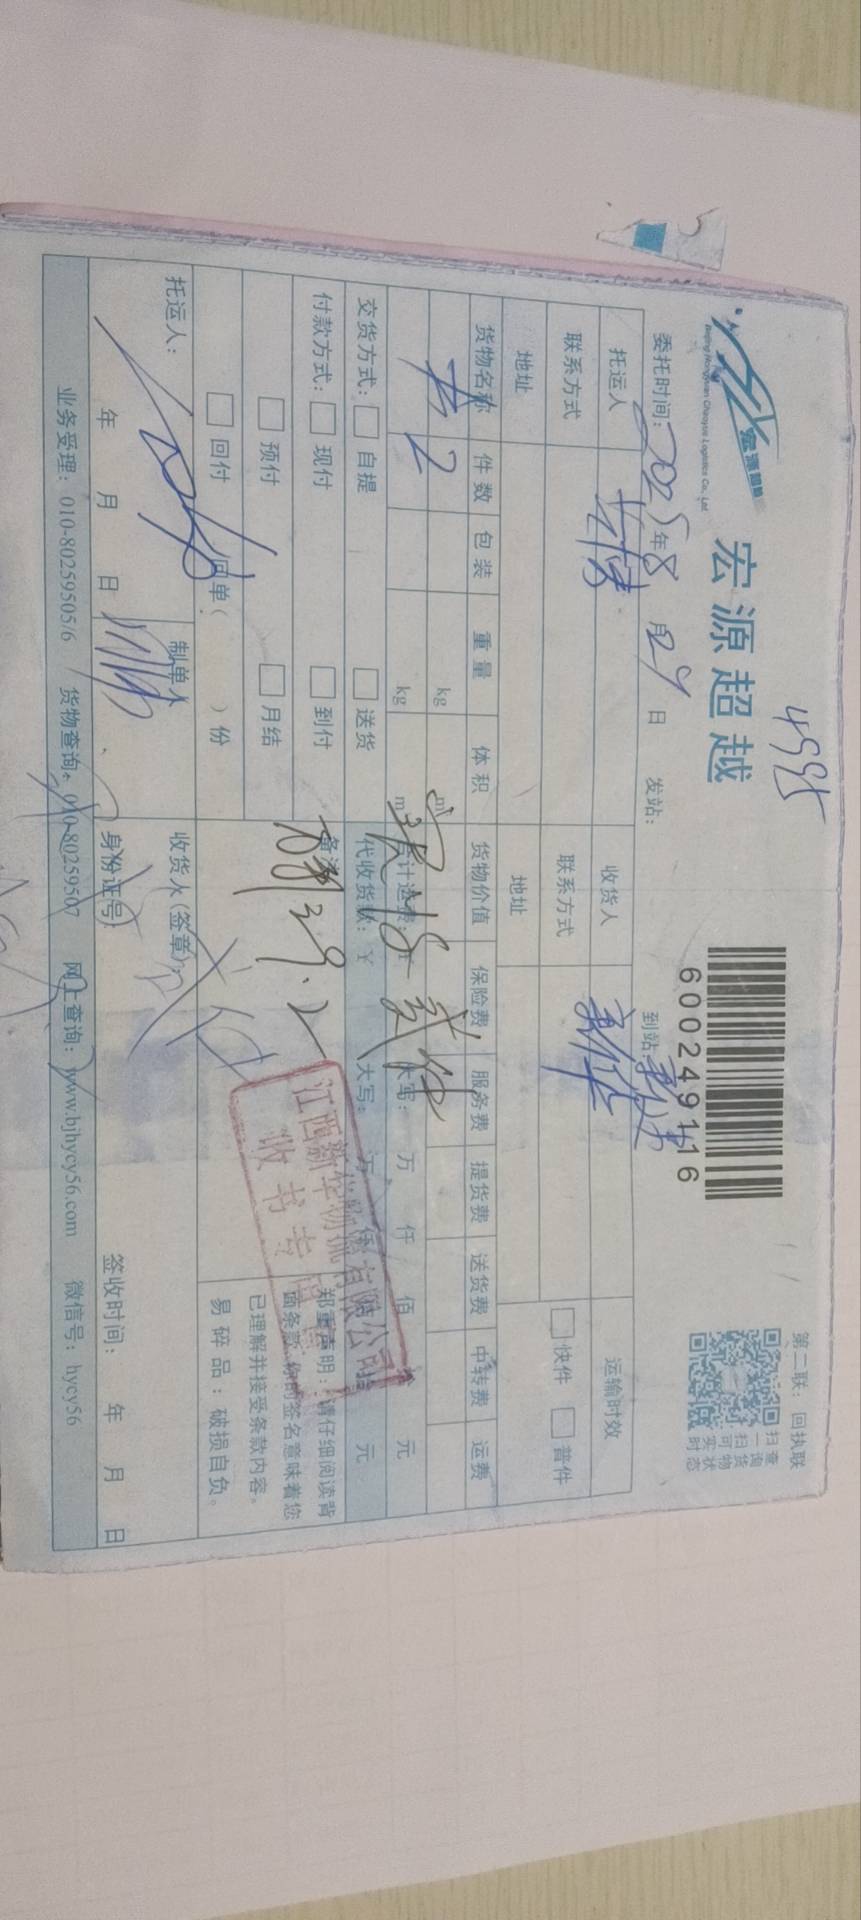 4995
宏源超越
宏源超越
Beijing Hongyuan Chaoyue Logistics Co., Ltd
6002491116
第二联：回执联
扫一扫可实时
查询货物状态
委托时间：2025年8月29日 发站： 到站：
托运人 收货人 新华 运输时效
联系方式 联系方式 快件 普件
地址 地址
货物名称 件数 包装 重量 体积 货物价值 保险费 服务费 提货费 送货费 中转费 运费
书 2 kg m³
kg m³ 合计运费 大写： 万 仟 佰 拾 元
现收 贰件
交货方式： 自提 送货 代收货款：¥ 大写： 万 仟 佰 拾 元
付款方式： 现付 到付 备注
预付 月结
回付 回单（ ）份
郑重声明：请仔细阅读背
面条款，你的签名意味着您
已理解并接受条款内容。
易碎品：破损自负。
江西新华物流有限公司
收书专用章
托运人： 制单人 收货人（签章）：
年 月 日 身份证号： 签收时间： 年 月 日
业务受理：010-80259505/6 货物查询：010-80259507 网上查询：www.bjhycy56.com 微信号：hycy56